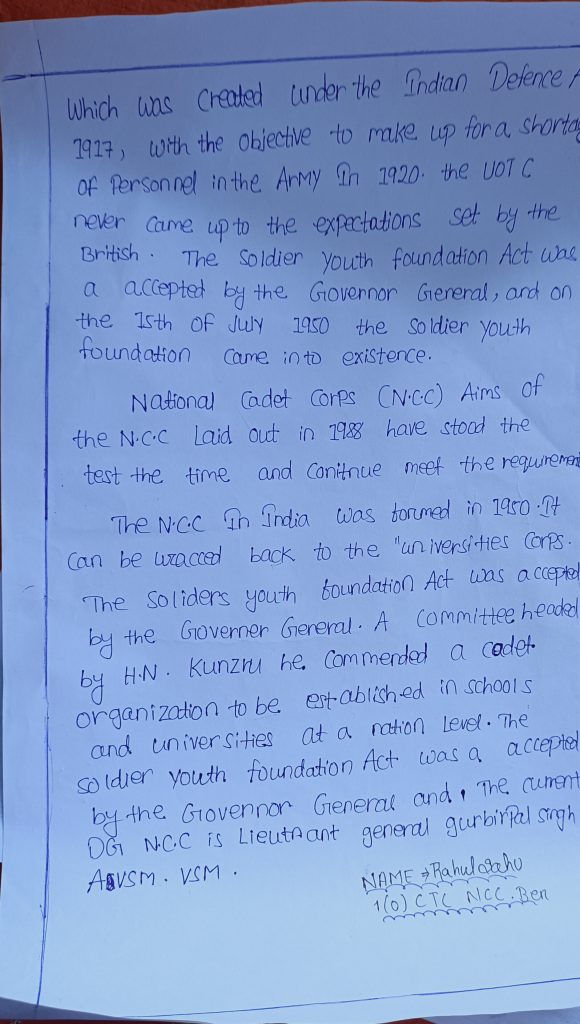 Which was Created under the Indian Defence A
1917, with the objective to make up for a shorta
of Personnel in the Army In 1920. the UOTC
never came up to the expectations set by the
British. The Soldier youth foundation Act was
a accepted by the Governor General, and on
the 15th of July 1950 the soldier youth
foundation came into existence.
National Cadet Corps (N.C.C) Aims of
the N.C.C Laid out in 1988 have stood the
test the time and Conitnue meet the requiremen
The N.C.C In India was formed in 1950. It
can be back to the "universities Corps.
The Soliders youth foundation Act was accepted
by the Governer General. A Committee headed
by H.N. Kunzru he Commended a cadet
organization to be established in schools
and universities at a nation Level. The
soldier youth foundation Act was a accepted
by the Governor General and, The current
DG N.C.C is Lieutnant general gurbirpal singh
AVSM. VSM.
NAME → Rahul
1(O) CTC NCC. Ben